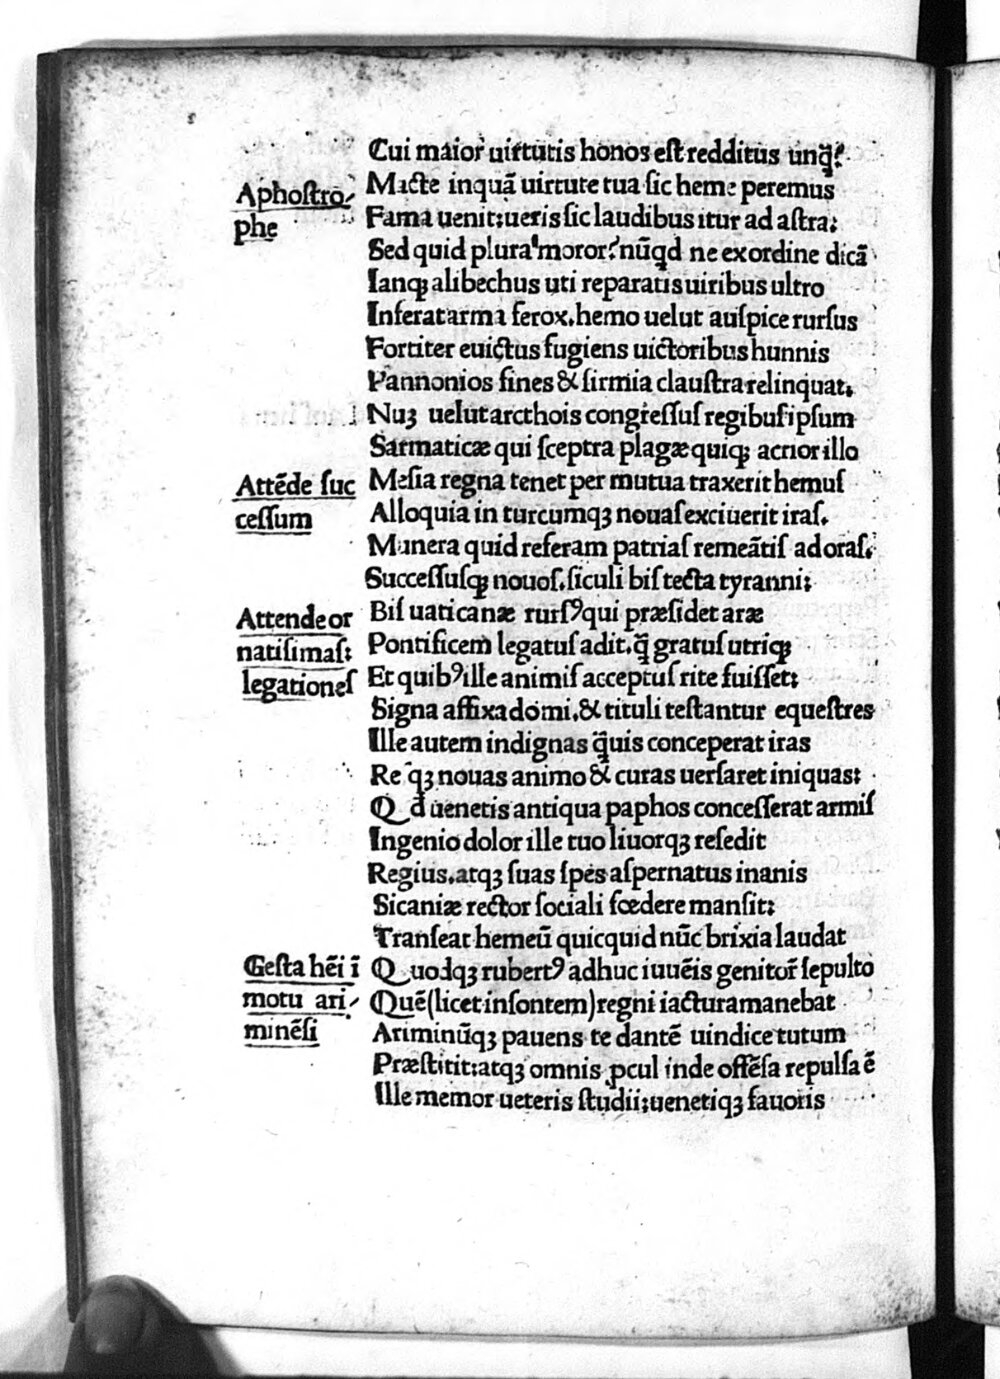 Cui maior uirtutis honos est redditus unq̃?
Aphostro⸗
phe
Macte inquã uirtute tua sic heme peremus
Fama uenit;ueris sic laudibus itur ad astra:
Sed quid plura moror?nũqd ne ex ordine dicã
Ianqꝫ alibechus uti reparatis uiribus ultro
Inferat arma ferox.hemo uelut auspice rursus
Fortiter euictus fugiens uictoribus hunnis
Pannonios fines & sirmia claustra relinquat.
Nuꝫ uelut arcthois congressus regibus ipsum
Sarmaticæ qui sceptra plagæ quiqꝫ acrior illo
Attẽde suc
cessum
Mesia regna tenet per mutua traxerit hemus
Alloquia in turcumqꝫ nouas exciuerit iras.
Munera quid referam patrias remeãtis ad oras.
Successusqꝫ nouos.siculi bis tecta tyranni:
Attende or
natisimas:
legationes
Bis uaticanæ rursꝰ qui præsidet aræ
Pontificem legatus adit.q̃ gratus utriqꝫ
Et quibꝰ ille animis acceptus rite fuisset:
Signa affixa domi.& tituli testantur equestres
Ille autem indignas q̃uis conceperat iras
Re qꝫ nouas animo & curas uersaret iniquas:
Qd uenetis antiqua paphos concesserat armis
Ingenio dolor ille tuo liuorqꝫ resedit
Regius.atqꝫ suas spes aspernatus inanis
Sicaniæ rector sociali fœdere mansit:
Transeat hemeũ quicquid nũc brixia laudat
Gesta hẽi ĩ
motu ari⸗
minẽsi
Quodqꝫ rubertꝰ adhuc iuuẽis genitor̃ sepulto
Quẽ(licet insontem)regni iactura manebat
Ariminũqꝫ pauens te dantẽ uindice tutum
Præstitit:atqꝫ omnis ꝓcul inde offẽsa repulsa ẽ
Ille memor ueteris studii;uenetiqꝫ fauoris